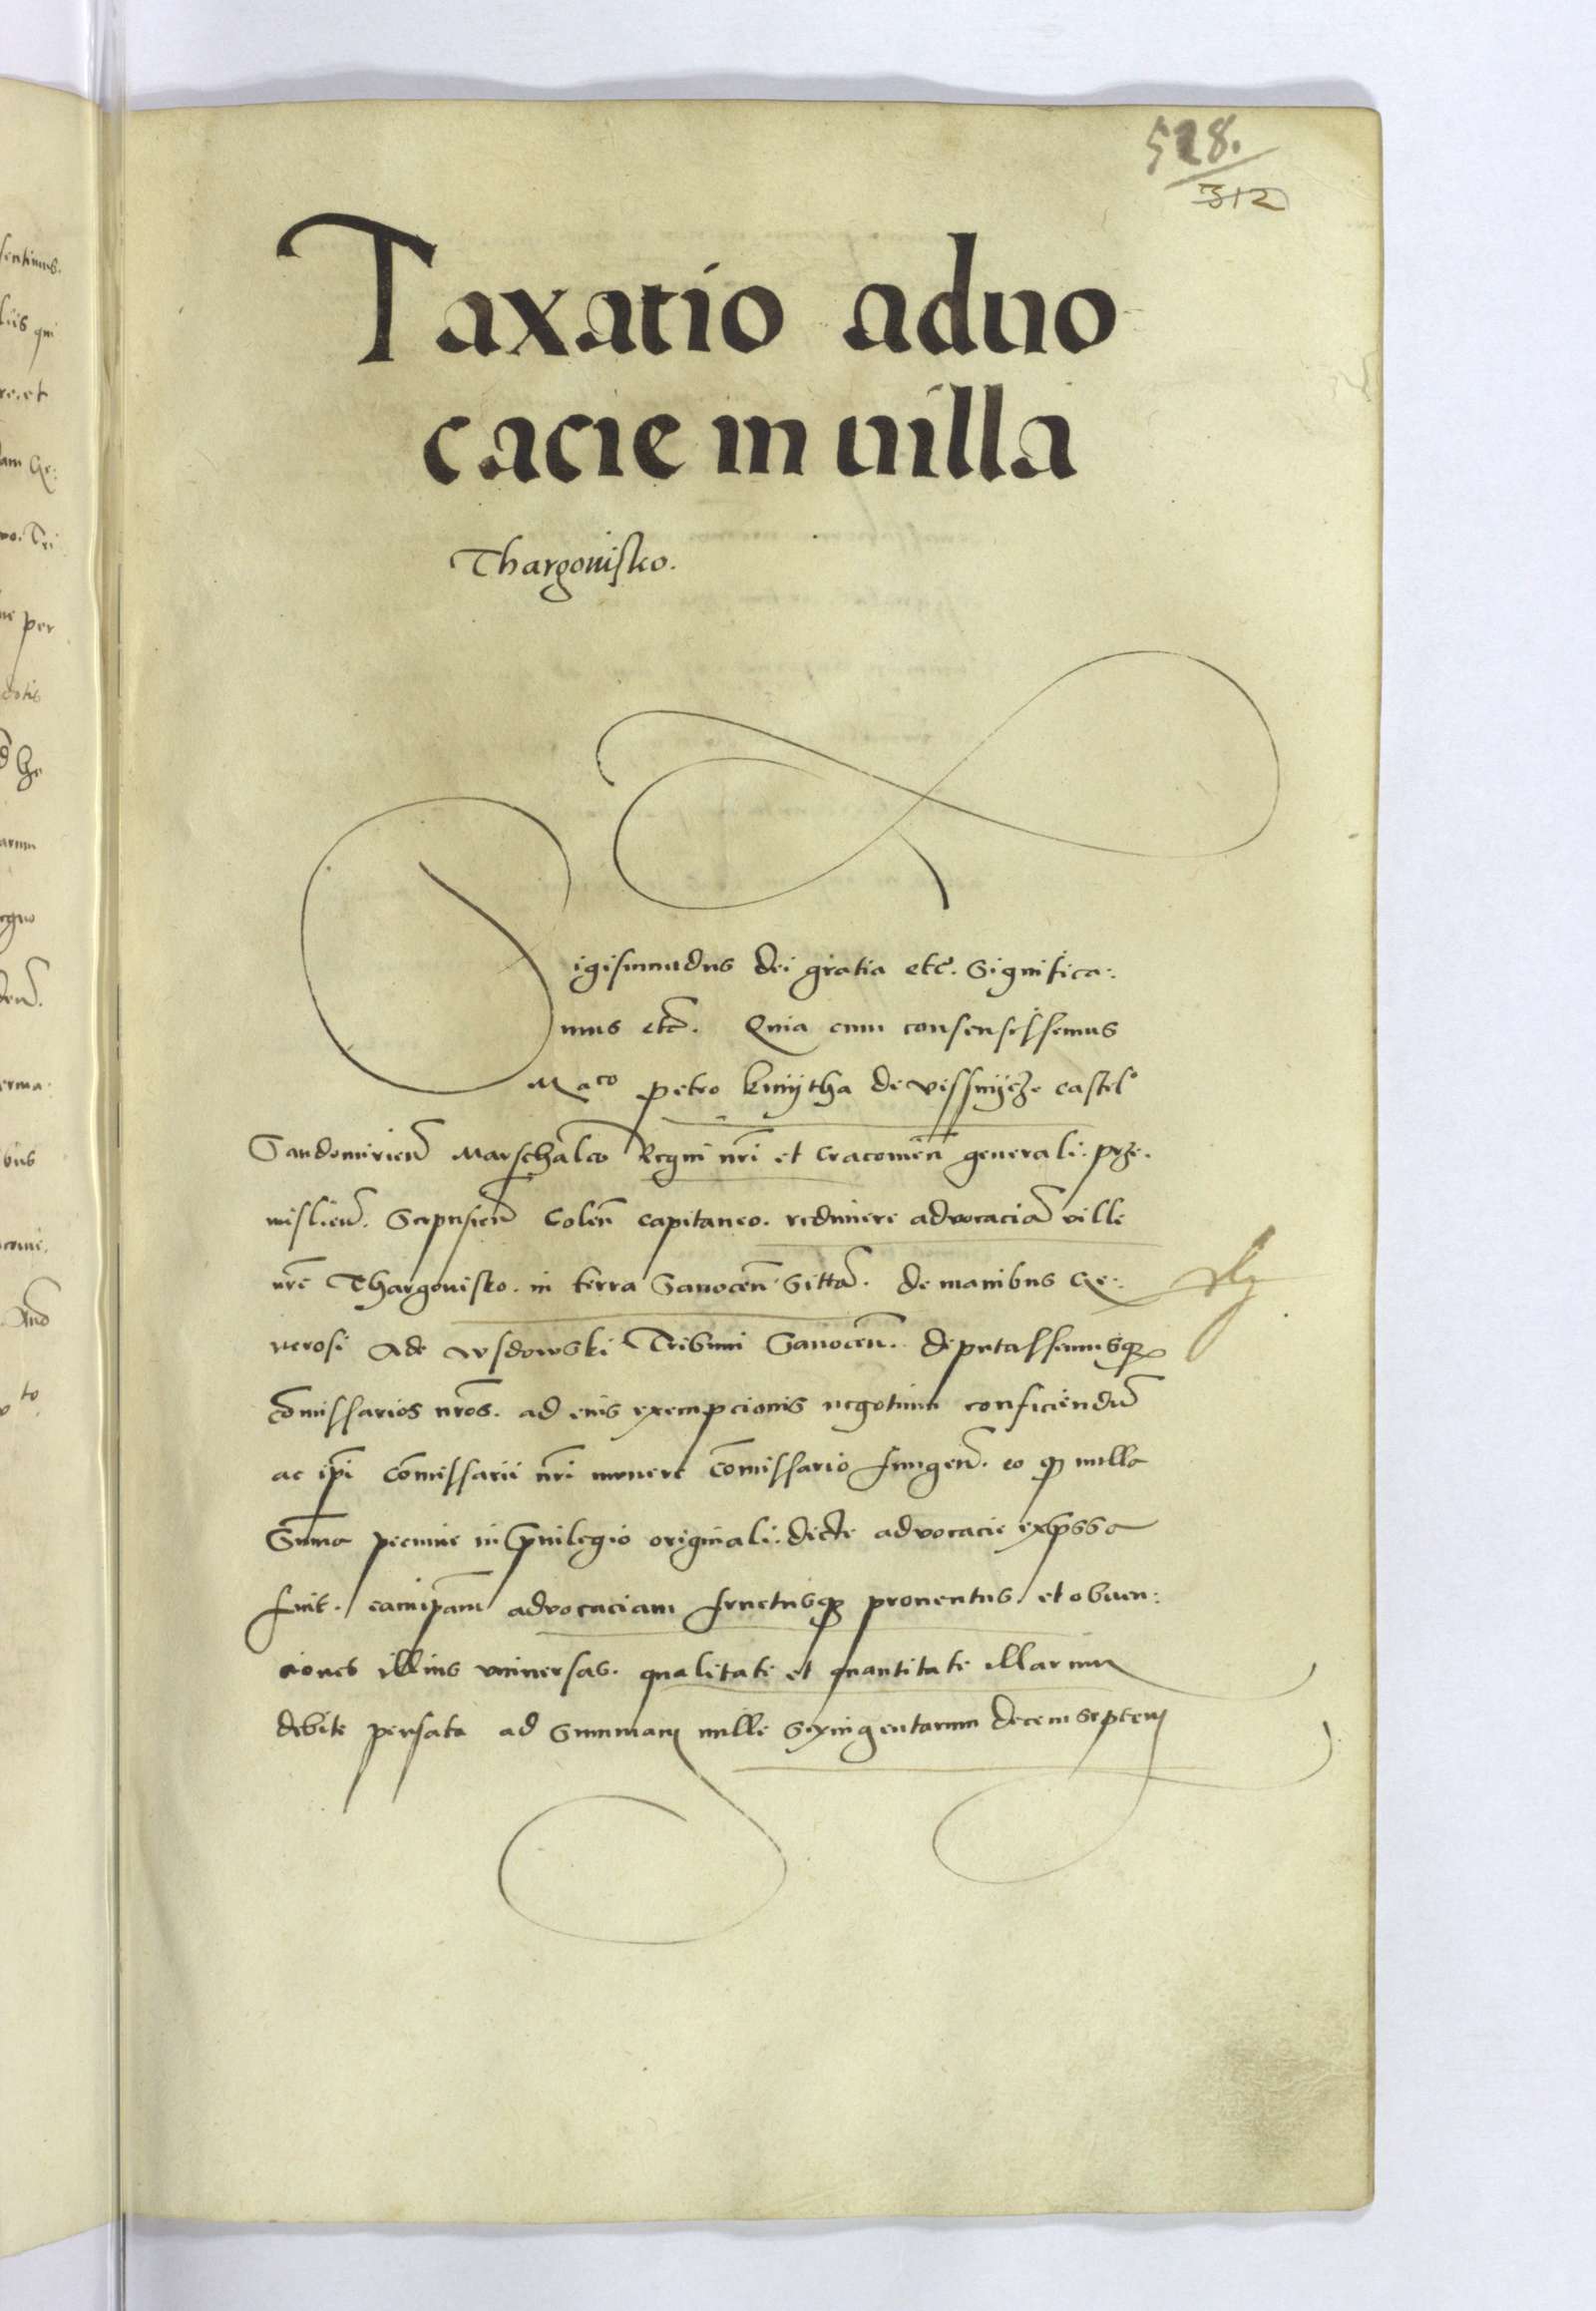 528.
312
Taxatio aduo
cacie in uilla
Thargouisko.
Sigismundus dei gratia etc. Significa:
mus etc. Quia cum consensissemus
Maco petro kmytha de vissnycze castelo
Sandomirien Marschalco Regni nri et Cracouien generali. prze.
mislien. Scepusien Colen capitaneo. redimere advocaciã ville
nre Thargouisko. in terra Sanocen sittã. de manibus Ge:
nerosi Ade wsdowski Tribuni Sanocen. deputassemusqz
comissarios nros. ad eius exempcionis negotium conficiendũ
ac ipi comissarii nri munere comissario fungen. eo qp nulla
Suma pecunie in priuilegio originali. dicte advocacie expssa
fuit. eamipam advocaciam fructusqz prouentus. et obuen:
ciones illius vniuersas. qualitate et quantitate illarum
debite pensata ad Summam mille Sexingentarum decem septem